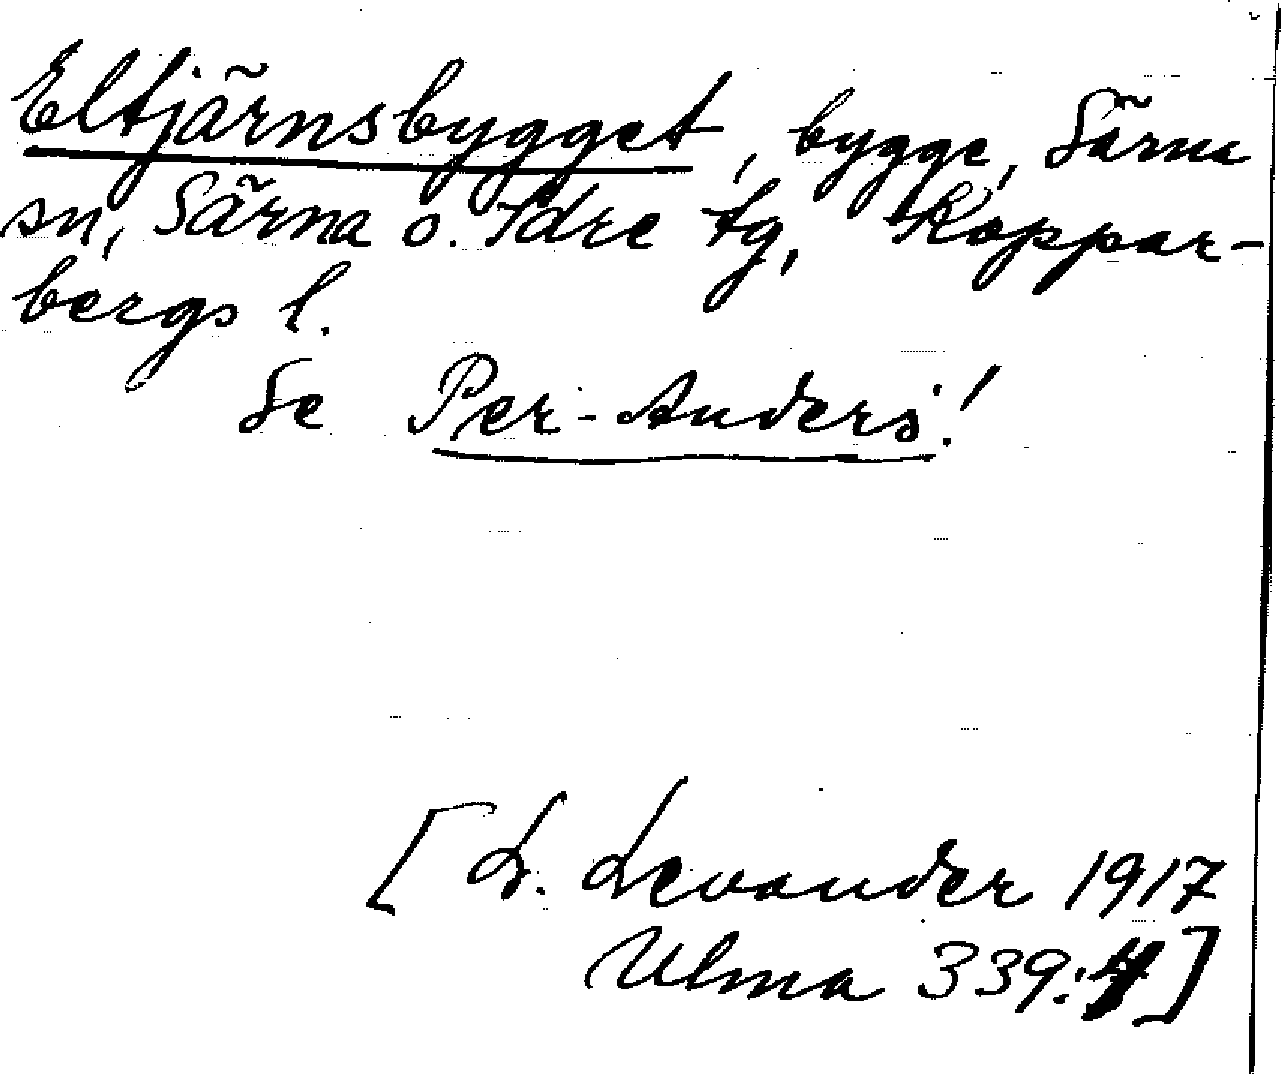 Eltjärnsbygget, bygge, Särna
sn, Särna o. Idre tg, Koppar-
bergs l.
Se Per-Anders!
[L. Levander 1917
Ulma 339:4]